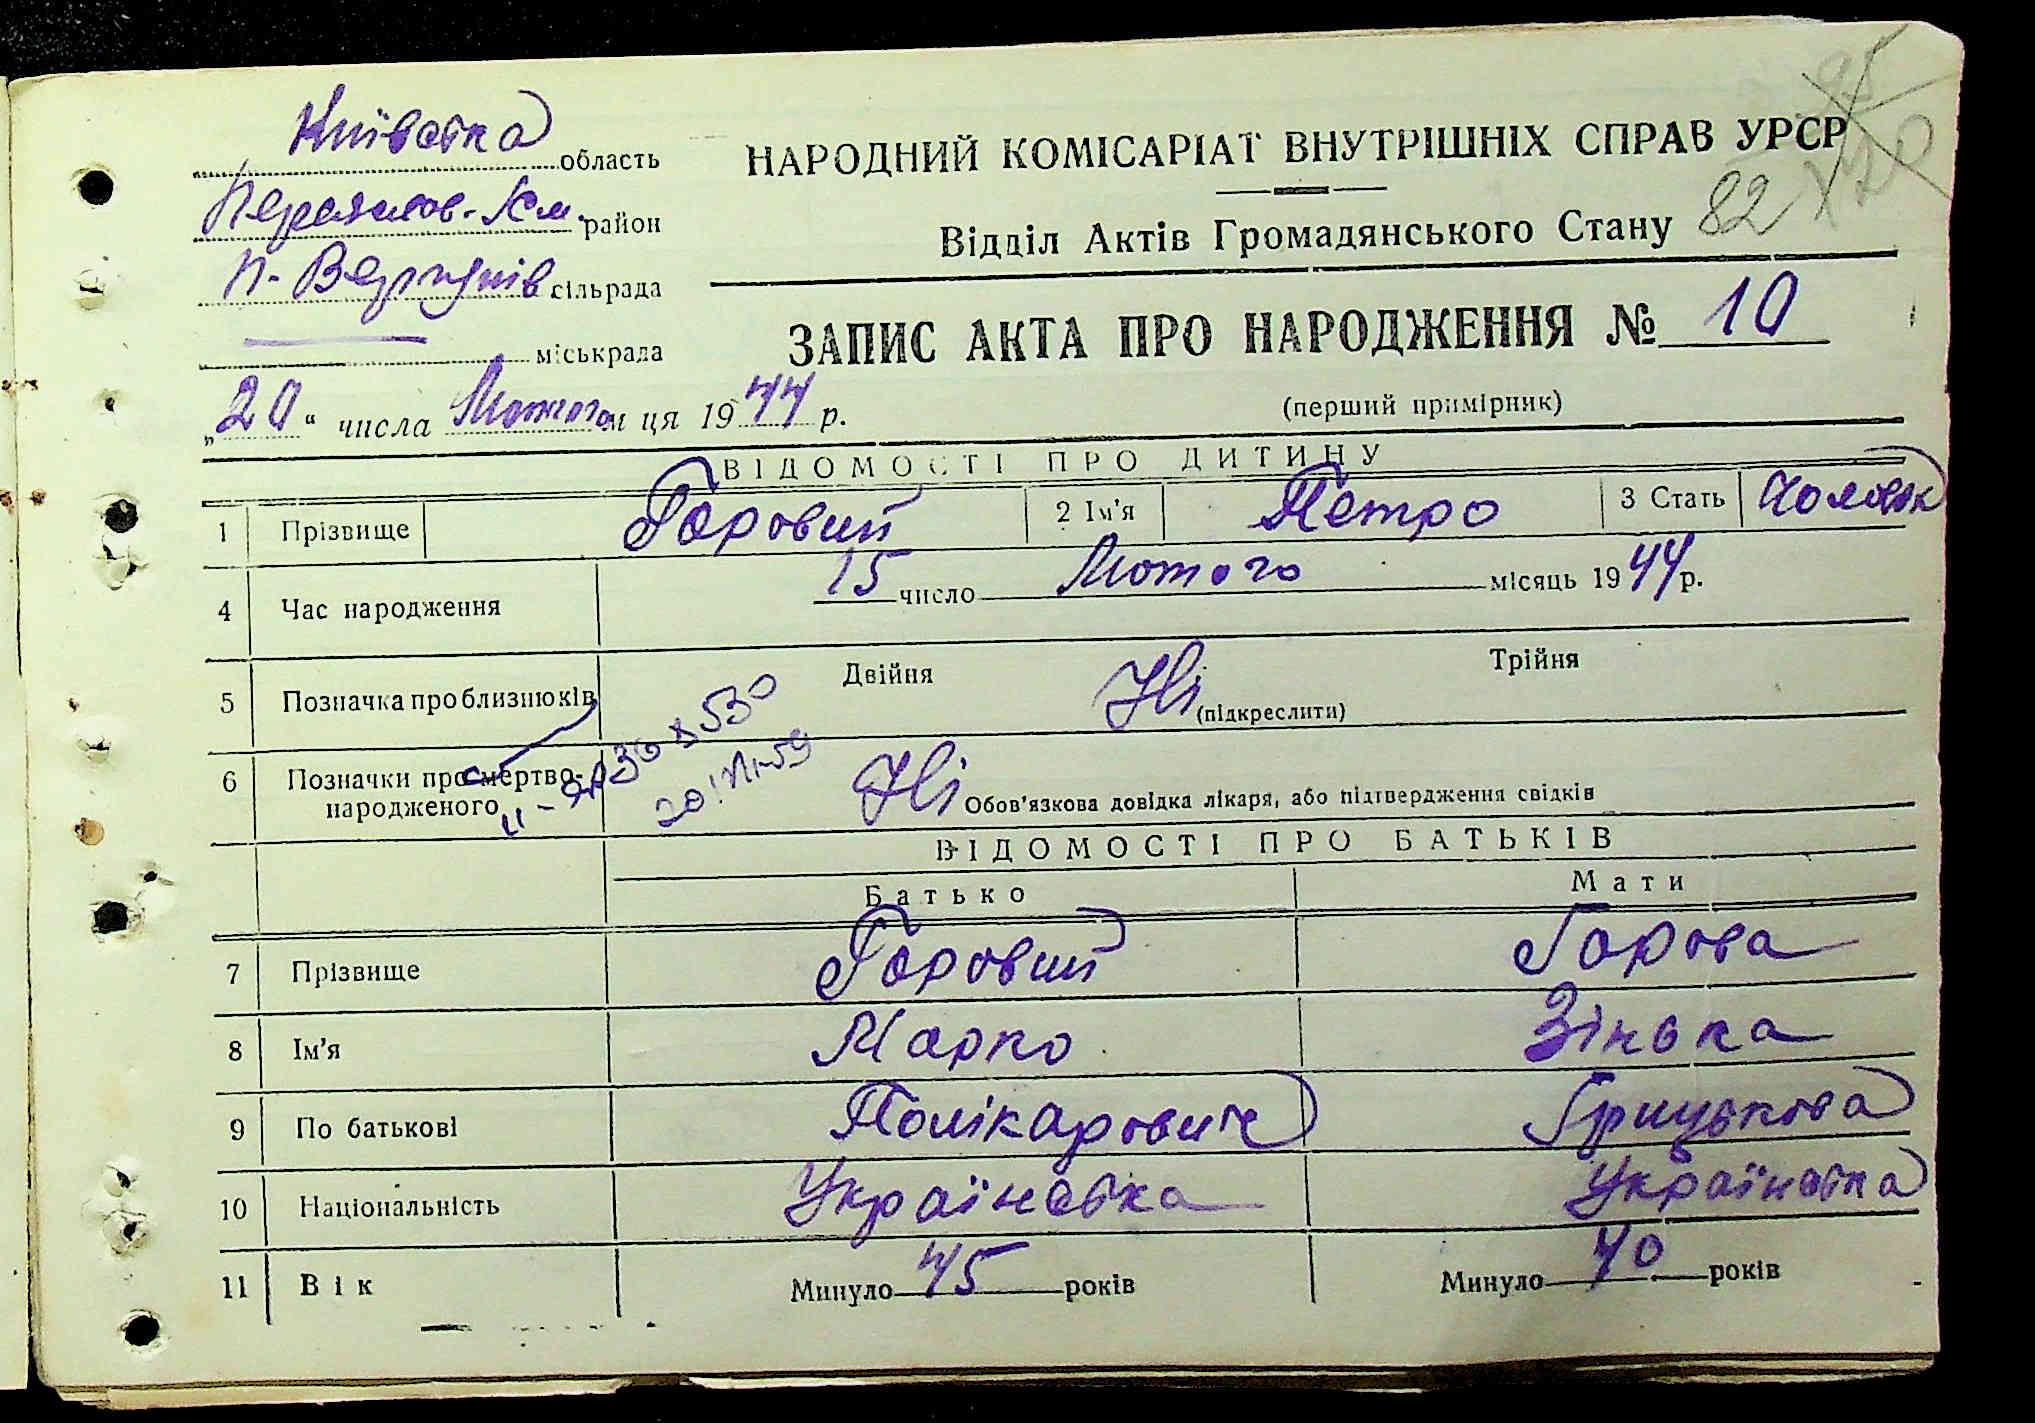 Київська область
НАРОДНИЙ КОМІСАРІАТ ВНУТРІШНІХ СПРАВ УРСР
95
120
Переяслов-Хм. район
Відділ Актів Громадянського Стану 82
П- сільрада
ЗАПИС АКТА ПРО НАРОДЖЕННЯ № 10
міськрада
„20“ числа Лютого м ця 1944 р.
(перший примірник)
ВІДОМОСТІ ПРО ДИТИНУ
1 Прізвище Горовий 2 Ім'я Петро 3 Стать Чоловік
4 Час народження 15 число Лютого місяць 1944 р.
5 Позначка про близнюків Двійня Ні (підкреслити) Трійня
6 Позначки про мертво-народженого Ні Обов'язкова довідка лікаря, або підтвердження свідків
ВІДОМОСТІ ПРО БАТЬКІВ
Батько Мати
7 Прізвище Горовий Горова
8 Ім'я Марко Зінька
9 По батькові Полікарович Грицькова
10 Національність Українська Українська
11 Вік Минуло 45 років Минуло 40 років